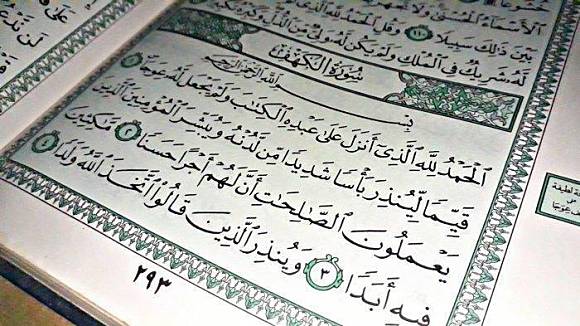 ٱلْأَسْمَآءُ ٱلْحُسْنَىٰ وَلَا
بَيْنَ ذَٰلِكَ سَبِيلًا ١١٠ وَقُلِ ٱلْحَمْدُ لِلَّهِ ٱلَّذِى
لَّهُۥ شَرِيكٌ فِى ٱلْمُلْكِ وَلَمْ يَكُن لَّهُۥ وَلِىٌّ مِّنَ ٱلذُّلِّ وَكَبِّرْهُ تَكْبِيرًۢا
سُورَةُ ٱلْكَهْفِ
بِسْمِ ٱللَّهِ ٱلرَّحْمَٰنِ ٱلرَّحِيمِ
ٱلْحَمْدُ لِلَّهِ ٱلَّذِىٓ أَنزَلَ عَلَىٰ عَبْدِهِ ٱلْكِتَٰبَ وَلَمْ يَجْعَل لَّهُۥ عِوَجَا ١
قَيِّمًا لِّيُنذِرَ بَأْسًا شَدِيدًا مِّن لَّدُنْهُ وَيُبَشِّرَ ٱلْمُؤْمِنِينَ ٱلَّذِينَ
يَعْمَلُونَ ٱلصَّٰلِحَٰتِ أَنَّ لَهُمْ أَجْرًا حَسَنًا ٢ مَّٰكِثِينَ
فِيهِ أَبَدًا ٣ وَيُنذِرَ ٱلَّذِينَ قَالُوا۟ ٱتَّخَذَ ٱللَّهُ وَلَدًا ٤
٢٩٣